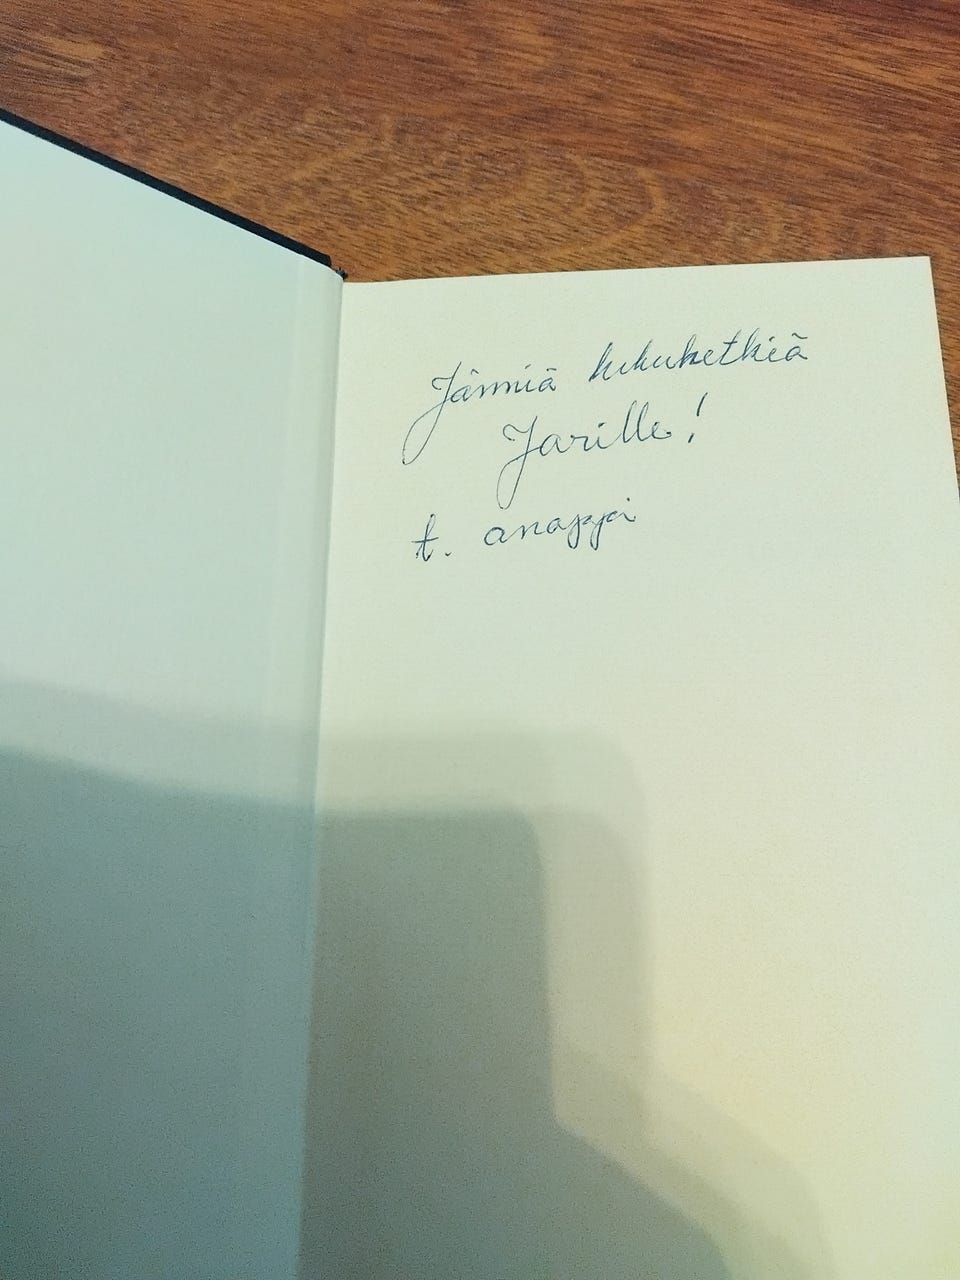 Jänniä lukuhetkiä
Jarille!
t. anoppi